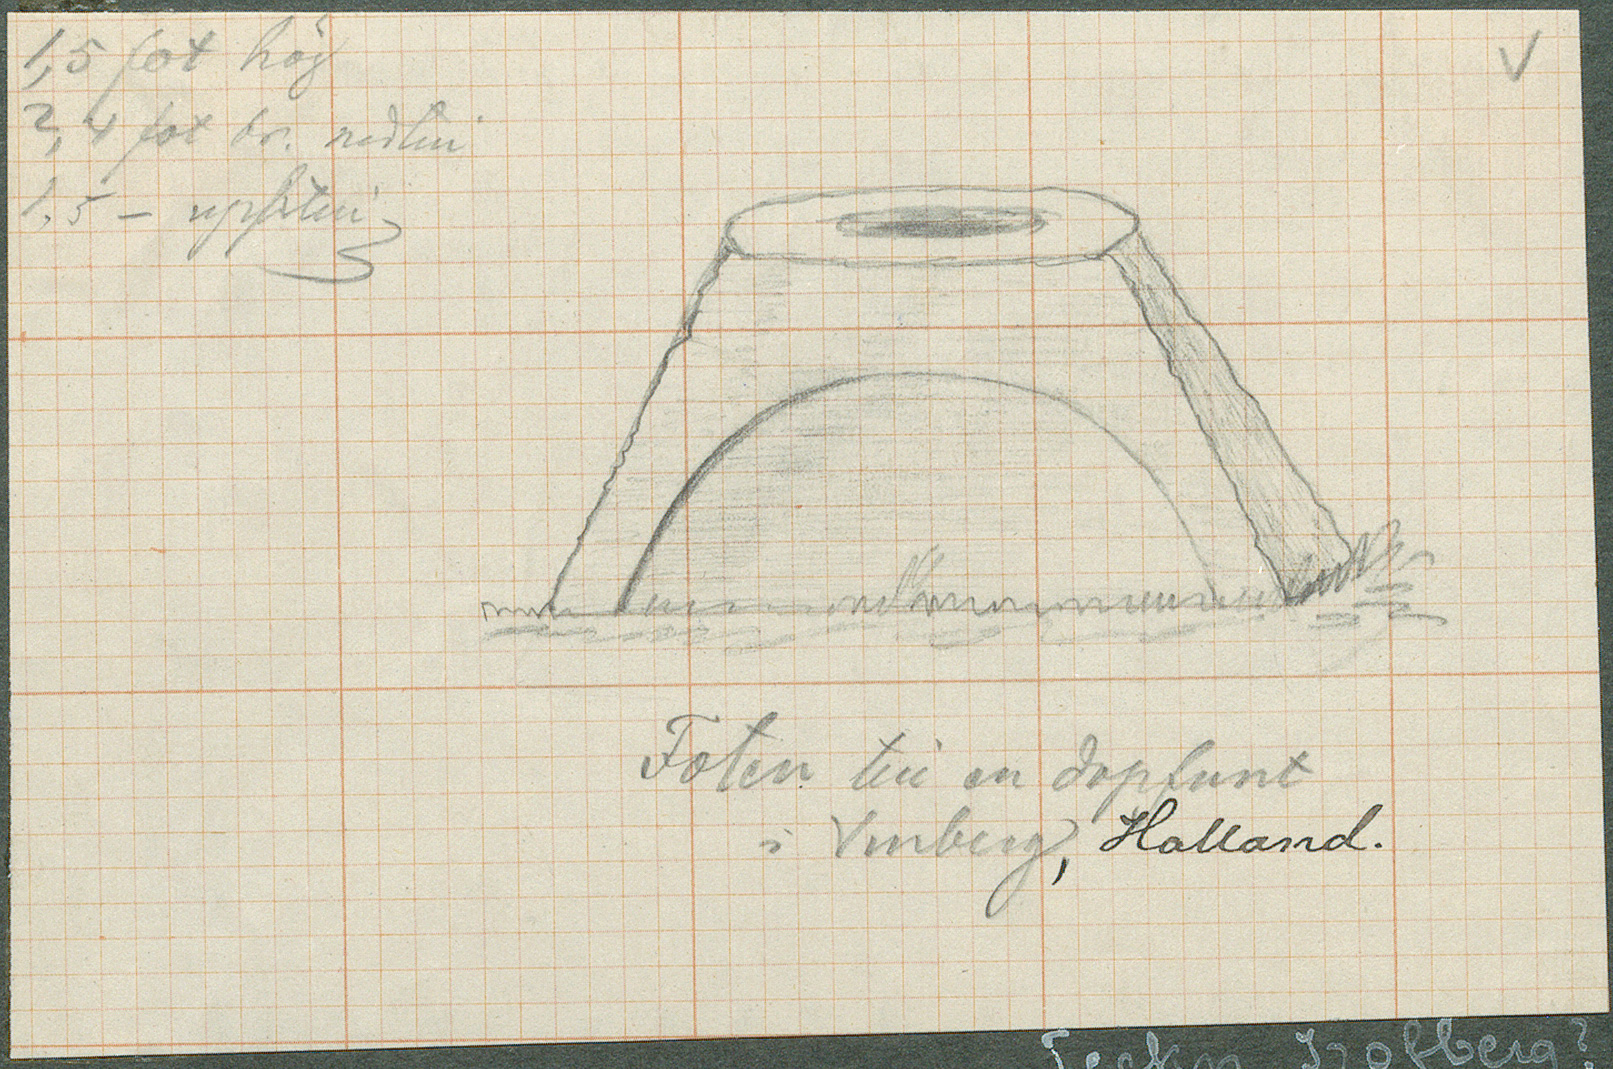 1,5 fot hög
2,4 fot br. nedtill
1,5 — upptill
V
Foten till en dopfunt
i Vinberg, Halland.
Teckn Igolberg?